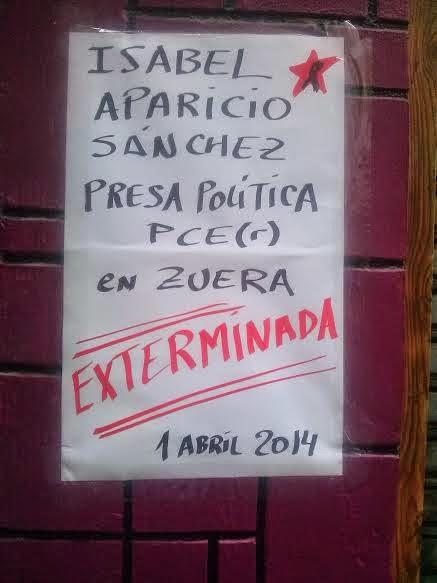 ISABEL
APARICIO
SÁNCHEZ
PRESA POLÍTICA
PCE(r)
en ZUERA
EXTERMINADA
1 ABRIL 2014